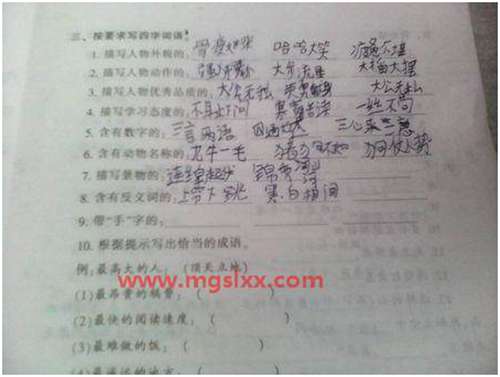 三、按要求写四字词语。
1. 描写人物外貌的: 骨瘦如柴 哈哈大笑
2. 描写人物动作的: 大摇大摆
3. 描写人物优秀品质的: 大公无私 大公无私
4. 描写学习态度的: 不耻下问 寒窗苦读
5. 含有数字的: 三言两语 三心二意
6. 含有动物名称的: 九牛一毛
7. 描写景物的: 连绵起伏 锦绣河山
8. 含有反义词的: 上窜下跳 黑白相间
9. 带“手”字的:
10. 根据提示写出恰当的成语。
例:最高大的人: (顶天立地)
www.mgslxx.com
(1)最昂贵的稿费: ( )
(2)最快的阅读速度: ( )
(3)最难做的饭: ( )
(4)最遥远的地方: (